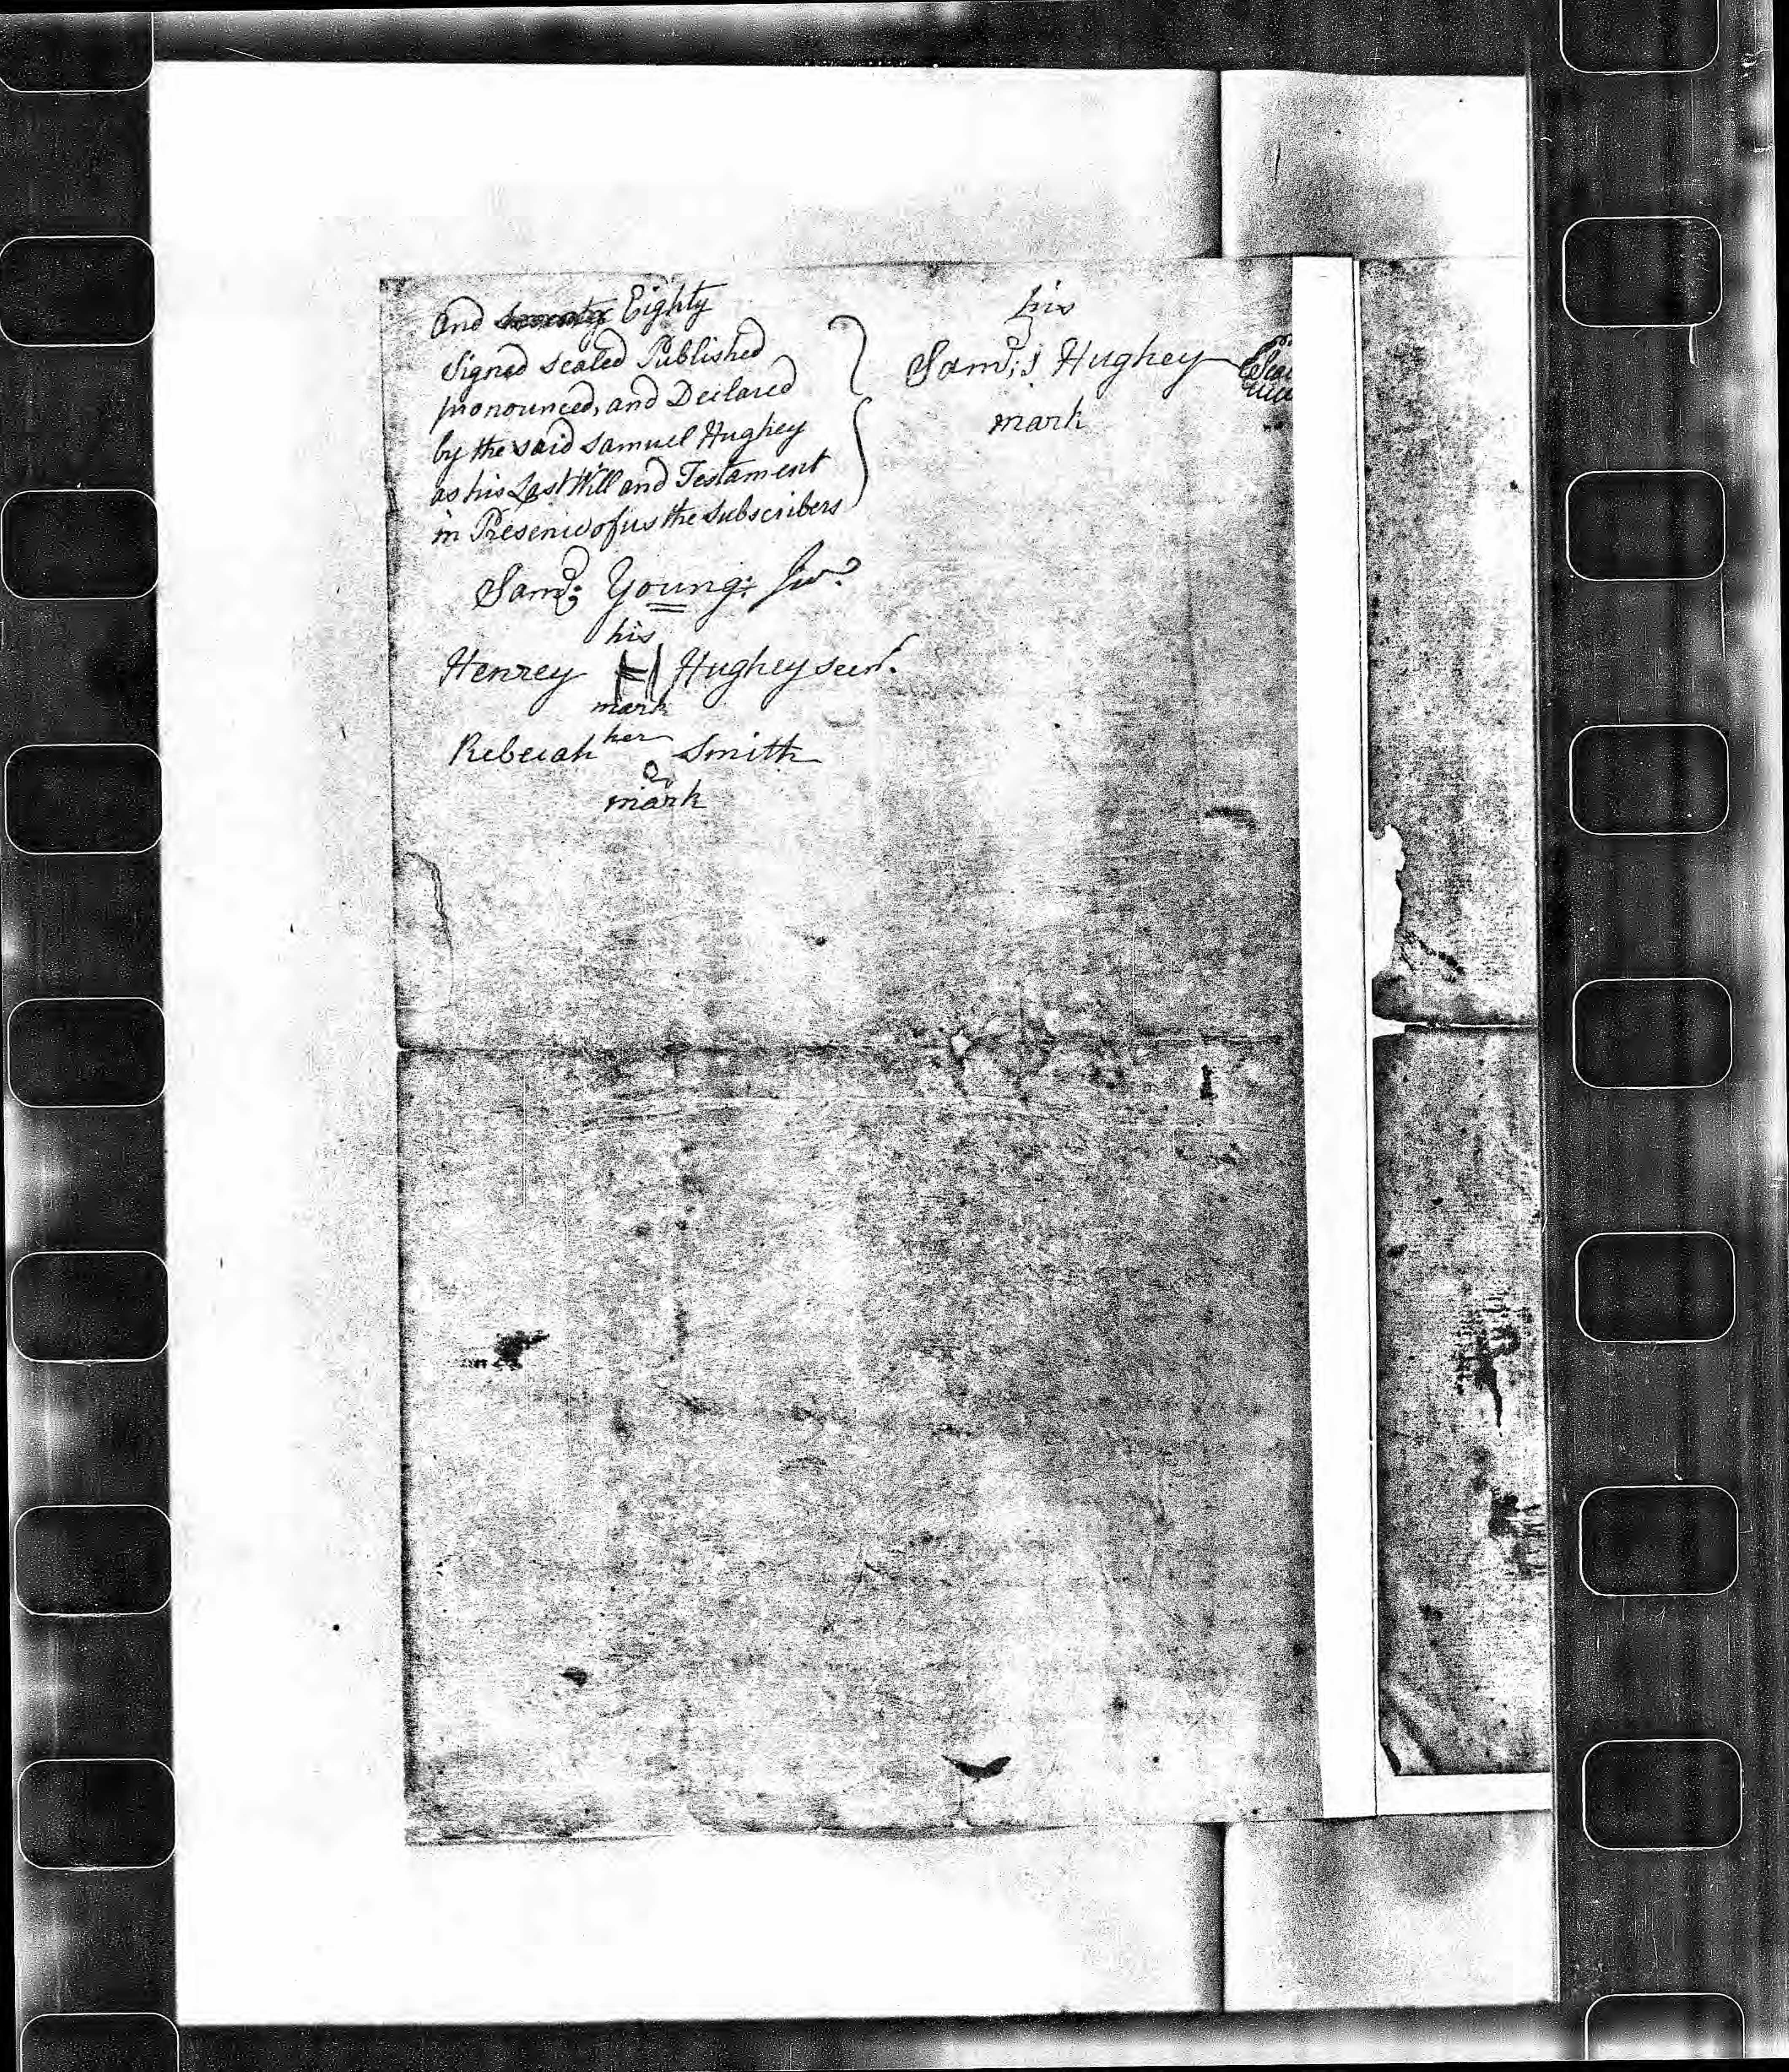 and seventy Eighty
Signed sealed Published
pronounced, and Declared
by the said Samuel Hughey
as his Last Will and Testament
in Presence of us the Subscribers
his
Saml; S Hughey
mark
Saml; Young: Junr
his
Henrey H Hughey senr.
mark
her
Rebecah Smith
mark